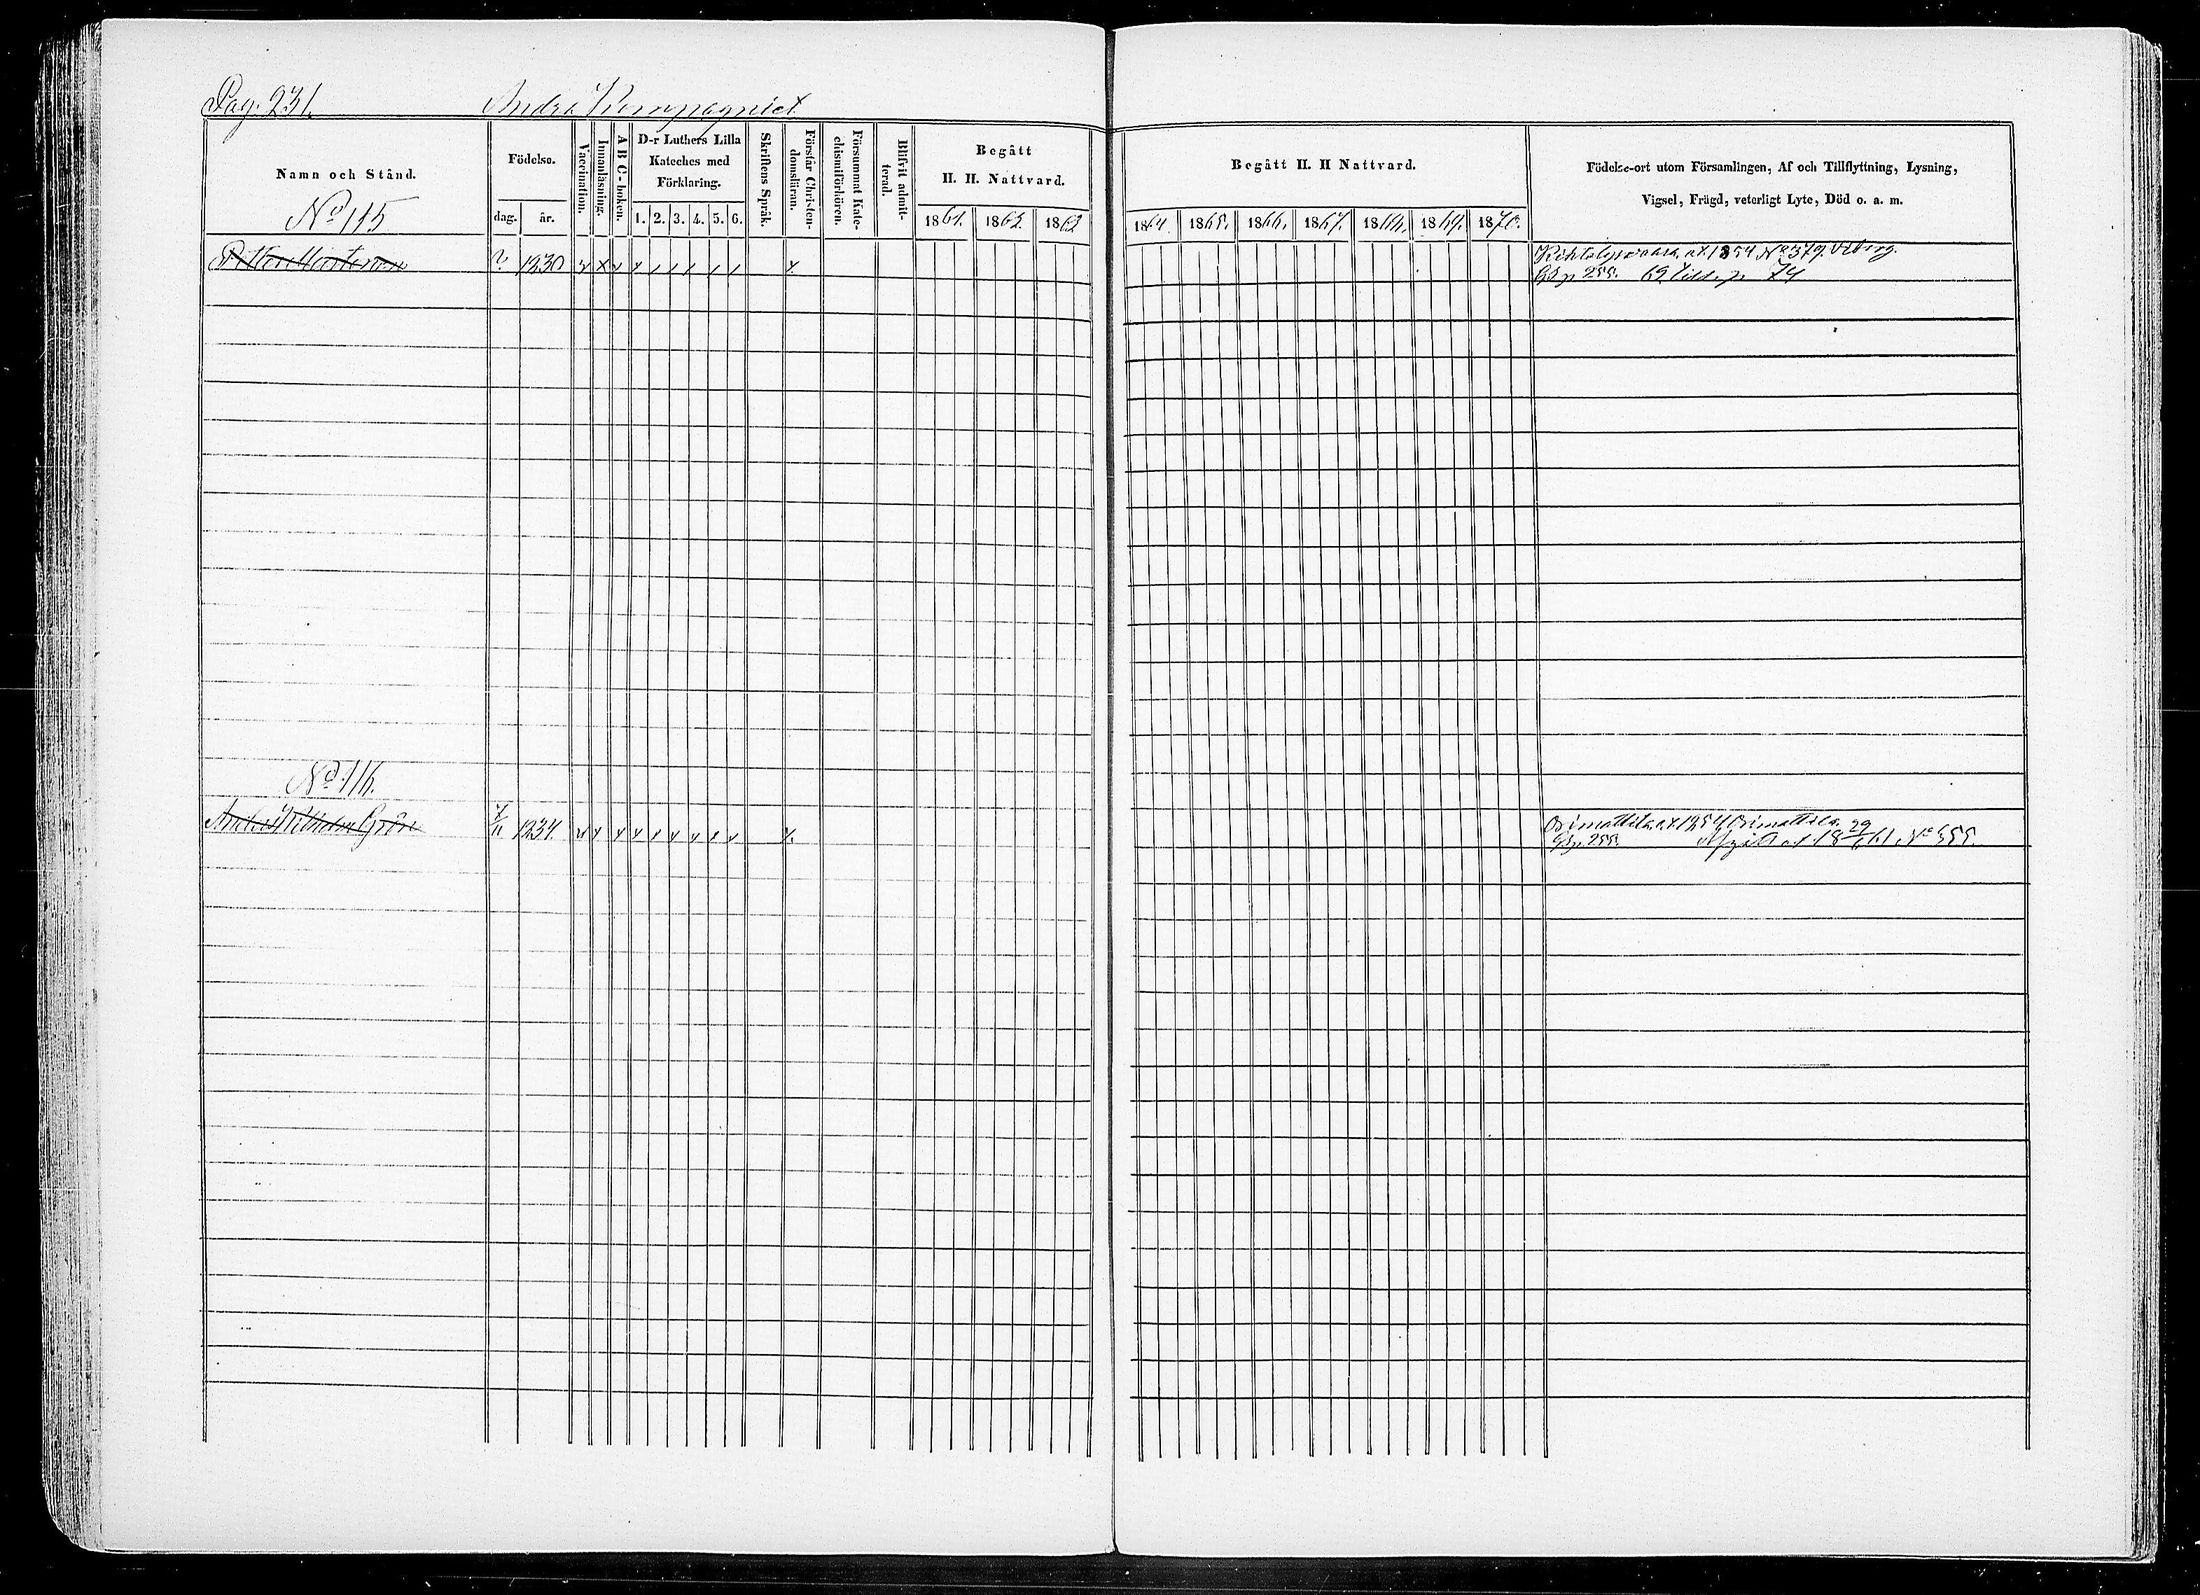 Pag. 231. Andra Kompagniet
Namn och Stånd.
Födelse.
dag. år.
Vaccination.
Innanläsning.
A B C-boken.
D-r Luthers Lilla
Kateches med
Förklaring.
1. 2. 3. 4. 5. 6.
Skriftens Språk.
Förstår Christen-
domsläran.
Försummat Kate-
chismiförhören.
Blifvit admit-
terad.
Begått
H. H. Nattvard.
1861. 1862. 1863
Begått H. H Nattvard.
1864. 1865. 1866. 1867. 1868. 1869. 1870.
Födelse-ort utom Församlingen, Af och Tillflyttning, Lysning,
Vigsel, Frägd, veterligt Lyte, Död o. a. m.
No 115
Petter 1830 x Kihtelysvaara at. 1854 No 379. Viborg.
Gb p. 255. 69 p. 74
No 116.
Anders Wilhelm Grön 1834. x Orimattila at. 1854 Orimattila.
Gb p. 255. at 18 29/ 61 No 555.